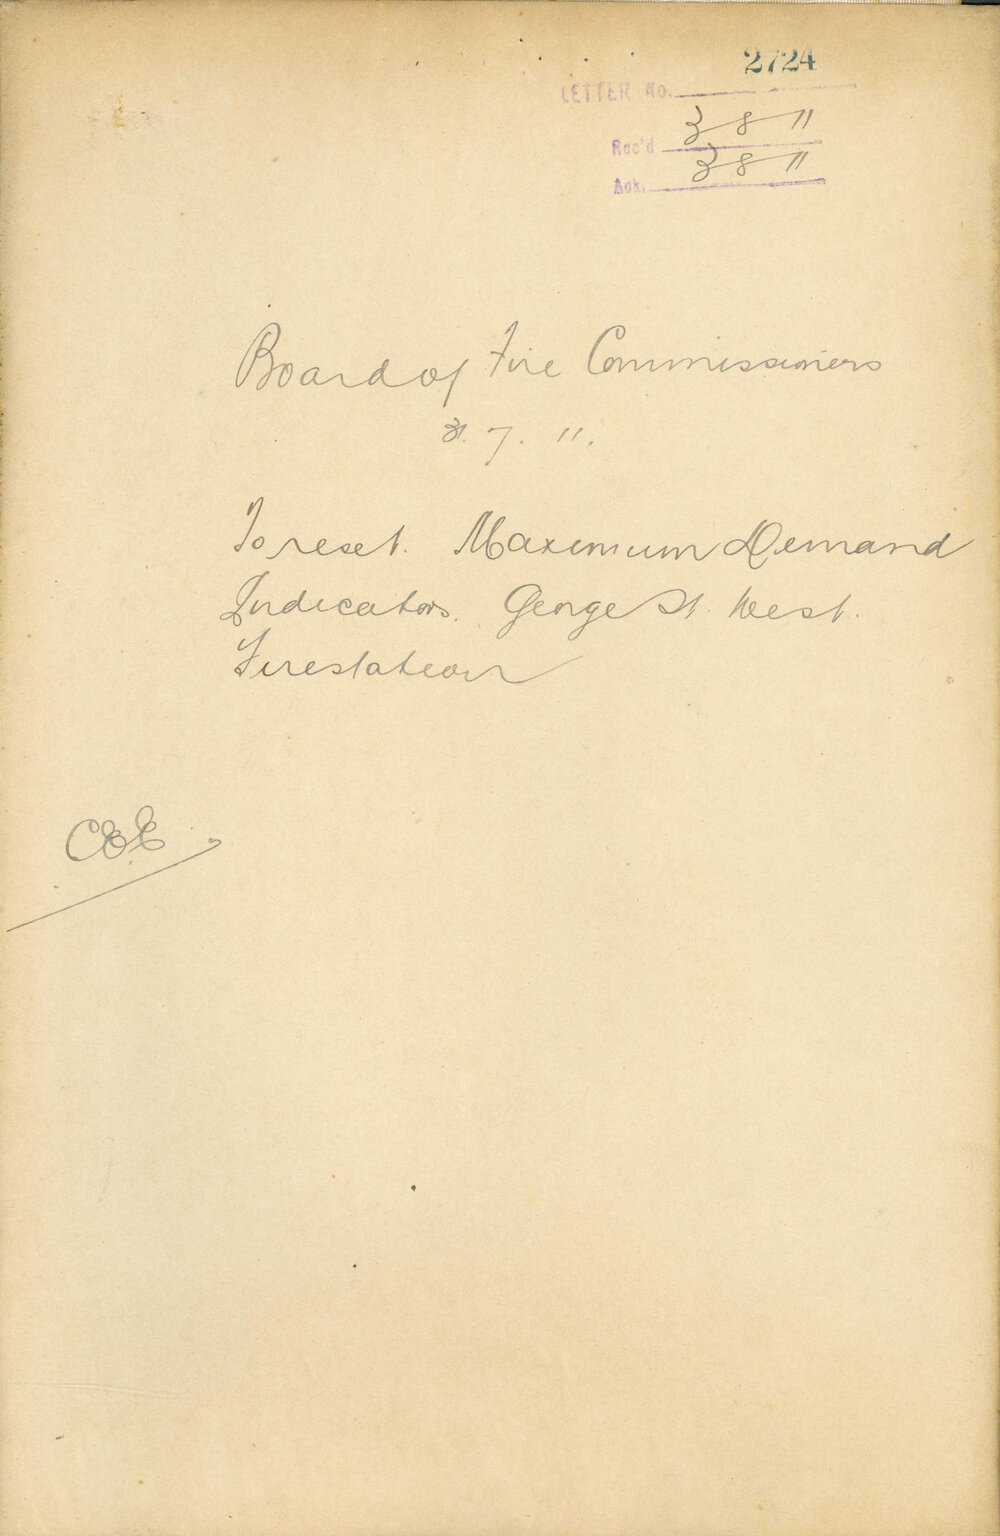 2724
LETTER No.
Rec'd 3 8 11
Ack. 3 8 11
Board of Fire Commissioners
7. 11.
To reset. Maximum Demand
Indicators. George St. West.
Firestation